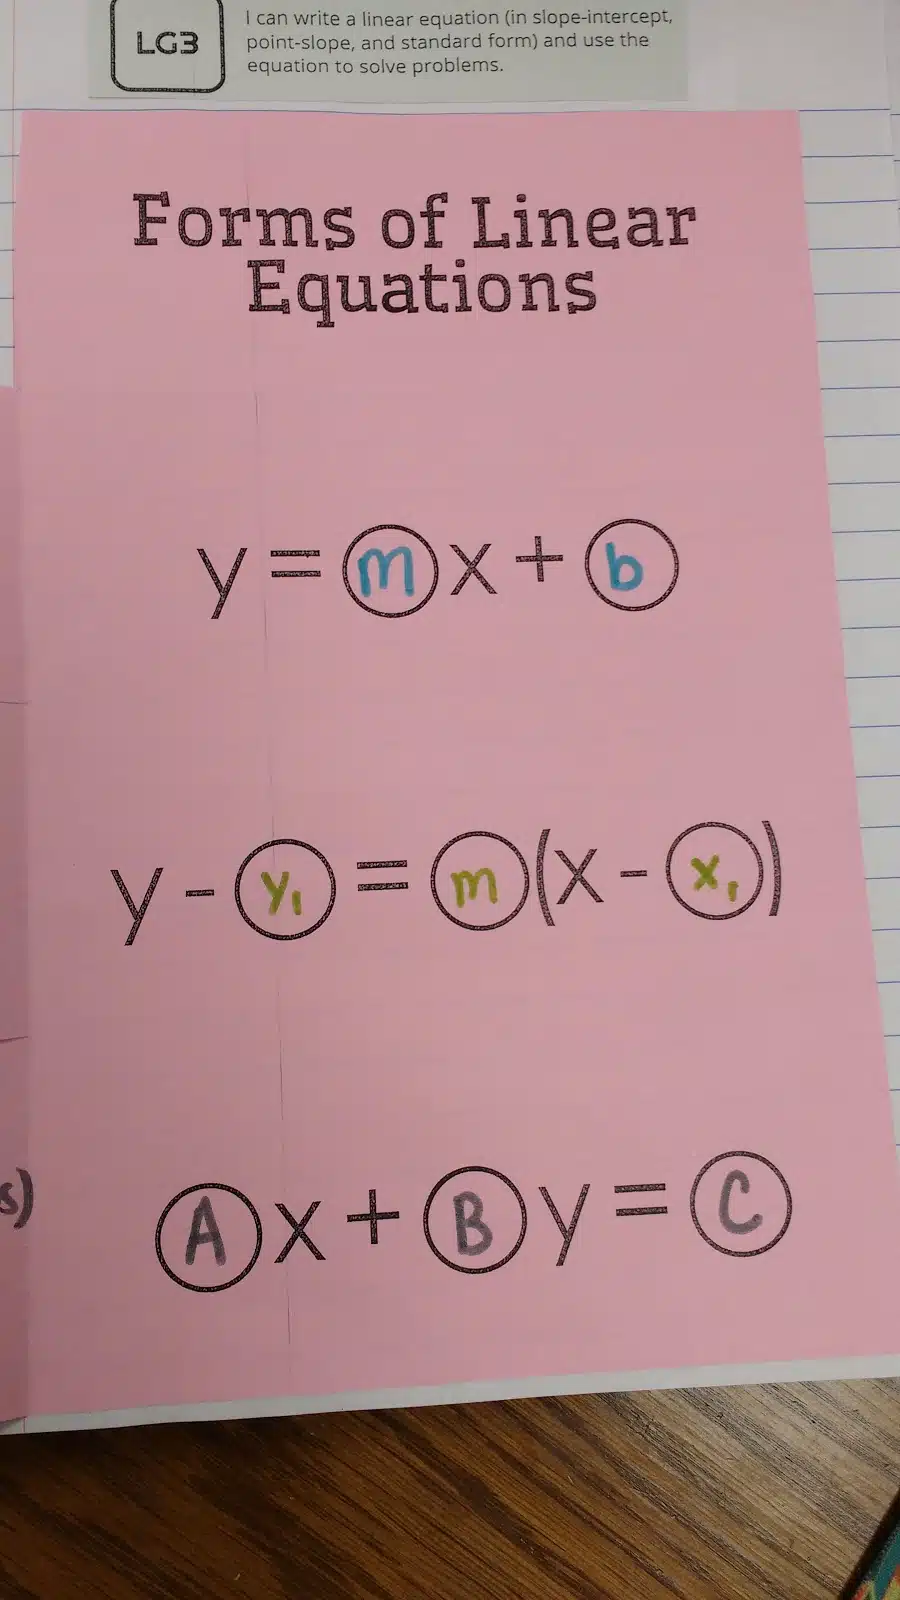 LG3
I can write a linear equation (in slope-intercept,
point-slope, and standard form) and use the
equation to solve problems.
Forms of Linear
Equations
y = m x + b
y - y₁ = m (x - x₁)
s)
A x + B y = C